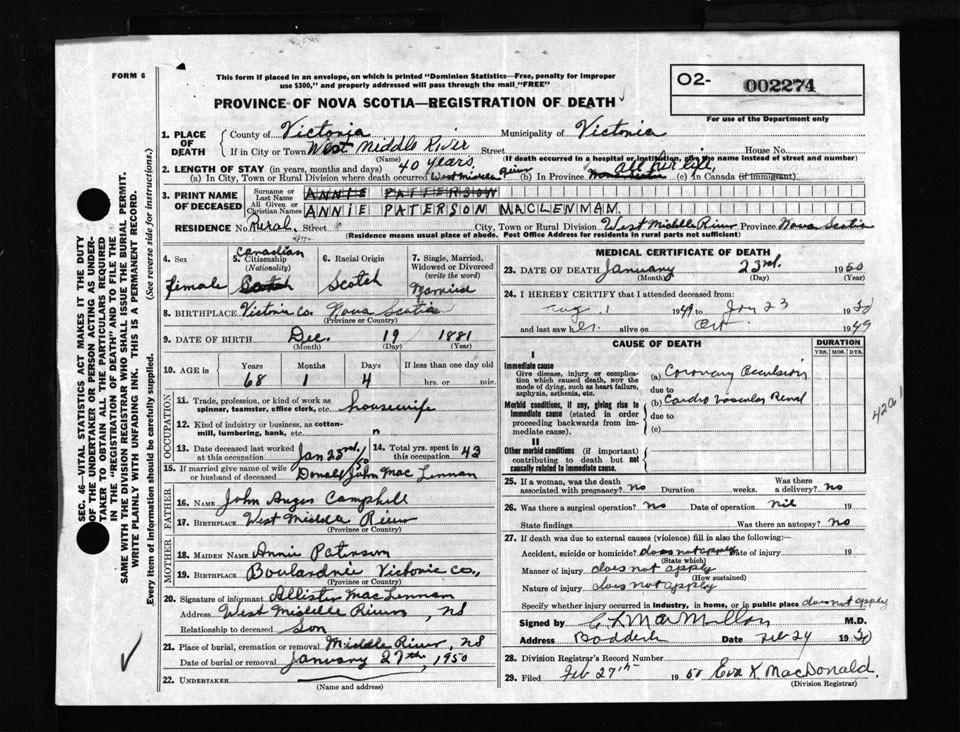 FORM 6
This form if placed in an envelope, on which is printed "Dominion Statistics—Free, penalty for improper
use $300," and properly addressed will pass through the mail "FREE"
O2- 002274
For use of the Department only
PROVINCE OF NOVA SCOTIA—REGISTRATION OF DEATH
1. PLACE OF DEATH County of Victoria Municipality of Victoria
If in City or Town West Middle River Street House No.
(Name) (If death occurred in a hospital or institution, give the name instead of street and number)
2. LENGTH OF STAY (in years, months and days) 40 years, All her life,
(a) In City, Town or Rural Division where death occurred West Middle River (b) In Province (c) In Canada (if immigrant)
3. PRINT NAME OF DECEASED Surname or Last Name ANNIE PATTERSON
All Given or Christian Names ANNIE PATERSON MACLENNAN
RESIDENCE No. Rural Street City, Town or Rural Division West Middle River Province Nova Scotia
(Residence means usual place of abode. Post Office Address for residents in rural parts not sufficient)
4. Sex female
5. Citizenship (Nationality) Canadian Scotch
6. Racial Origin Scotch
7. Single, Married, Widowed or Divorced (write the word) Married
8. BIRTHPLACE Victoria Co. Nova Scotia
(Province or Country)
9. DATE OF BIRTH Dec. 19 1881
(Month) (Day) (Year)
10. AGE in Years Months Days If less than one day old
68 1 4 hrs. or min.
OCCUPATION
11. Trade, profession, or kind of work as
spinner, teamster, office clerk, etc. housewife
12. Kind of industry or business, as cotton-
mill, lumbering, bank, etc. "
13. Date deceased last worked at this occupation Jan 23rd/50
14. Total yrs. spent in this occupation 43
15. If married give name of wife
or husband of deceased Donald John MacLennan
FATHER
16. NAME John Angus Campbell
17. BIRTHPLACE West Middle River
(Province or Country)
MOTHER
18. MAIDEN NAME Annie Paterson
19. BIRTHPLACE Boulardrie Victoria Co.,
(Province or Country)
20. Signature of informant Allister MacLennan
Address West Middle River, NS
Relationship to deceased Son
21. Place of burial, cremation or removal Middle River, NS
Date of burial or removal January 27th, 1950
22. UNDERTAKER
(Name and address)
MEDICAL CERTIFICATE OF DEATH
23. DATE OF DEATH January 23rd. 1950
(Month) (Day)
24. I HEREBY CERTIFY that I attended deceased from:
Aug. 1 1949 to Jan 23 1950
and last saw her alive on Oct. 1949
CAUSE OF DEATH
DURATION
YRS. MOS. DYS.
I
Immediate cause
Give disease, injury or complica-
tion which caused death, NOT the
mode of dying, such as heart failure,
asphyxia, asthenia, etc.
(a) Coronary Occulsion
due to
Morbid conditions, if any, giving rise to
immediate cause (stated in order
proceeding backwards from im-
mediate cause).
(b) Cardio Vascular Renal
due to
(c)
420.1
II
Other morbid conditions (if important)
contributing to death but not
causally related to immediate cause.
25. If a woman, was the death
associated with pregnancy? No Duration weeks. Was there a delivery? No
26. Was there a surgical operation? No Date of operation nil 19
State findings Was there an autopsy? No
27. If death was due to external causes (violence) fill in also the following:—
Accident, suicide or homicide? does not apply Date of injury 19
(State which)
Manner of injury does not apply
(How sustained)
Nature of injury does not apply
Specify whether injury occurred in industry, in home, or in public place does not apply
Signed by C L MacMillan M.D.
Address Baddeck Date Feb 24 1950
28. Division Registrar's Record Number
29. Filed Feb 27th 1950 Eva K MacDonald.
(Division Registrar)
SEC. 46—VITAL STATISTICS ACT MAKES IT THE DUTY
OF THE UNDERTAKER OR PERSON ACTING AS UNDER-
TAKER TO OBTAIN ALL THE PARTICULARS REQUIRED
IN THE "REGISTRATION OF DEATH" AND TO FILE THE
SAME WITH THE DIVISION REGISTRAR WHO SHALL ISSUE THE BURIAL PERMIT.
WRITE PLAINLY WITH UNFADING INK. THIS IS A PERMANENT RECORD.
Every item of information should be carefully supplied. (See reverse side for instructions.)